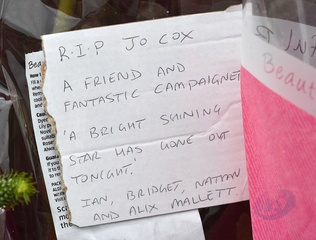 R.I.P JO COX
A FRIEND AND
FANTASTIC CAMPAIGNER
'A BRIGHT SHINING
STAR HAS GONE OUT
TONIGHT.'
IAN, BRIDGET, NATHAN
AND ALIX MALLETT
Beaut